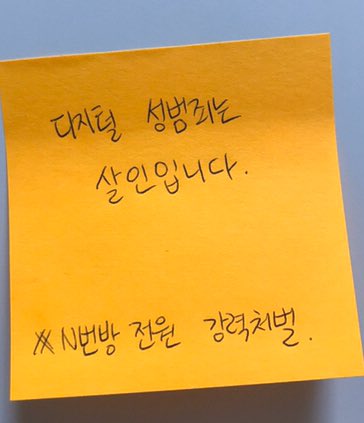 디지털 성범죄는
살인입니다.
※N번방 전원 강력처벌.